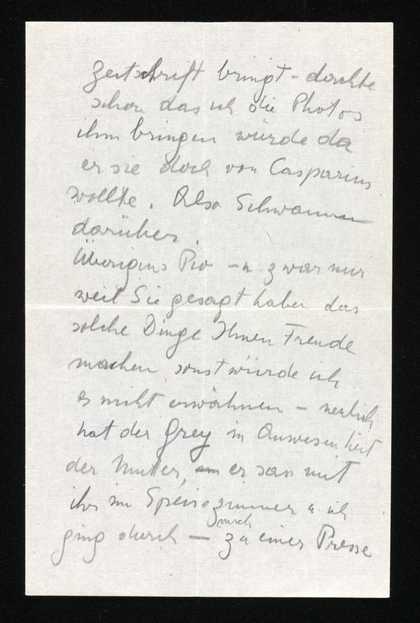 Zeitschrift bringt – dachte
schon das ich die Photos
ihm bringen würde da
er sie doch von Casparius
wollte. Also Schwamm
darüber.
Übrigens Pio – u. zwar nur
weil Sie gesagt haben das
solche Dinge Ihnen Freude
machen sonst würde ich
es nicht erwähnen – neulich
hat der Grey in Anwesenheit
der Mutter, er sass mit
ihr im Speisezimmer u. ich
ging durch – zu einer Presse